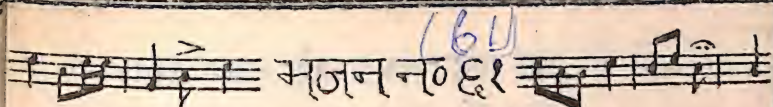 (61)
भजन नं० ६१